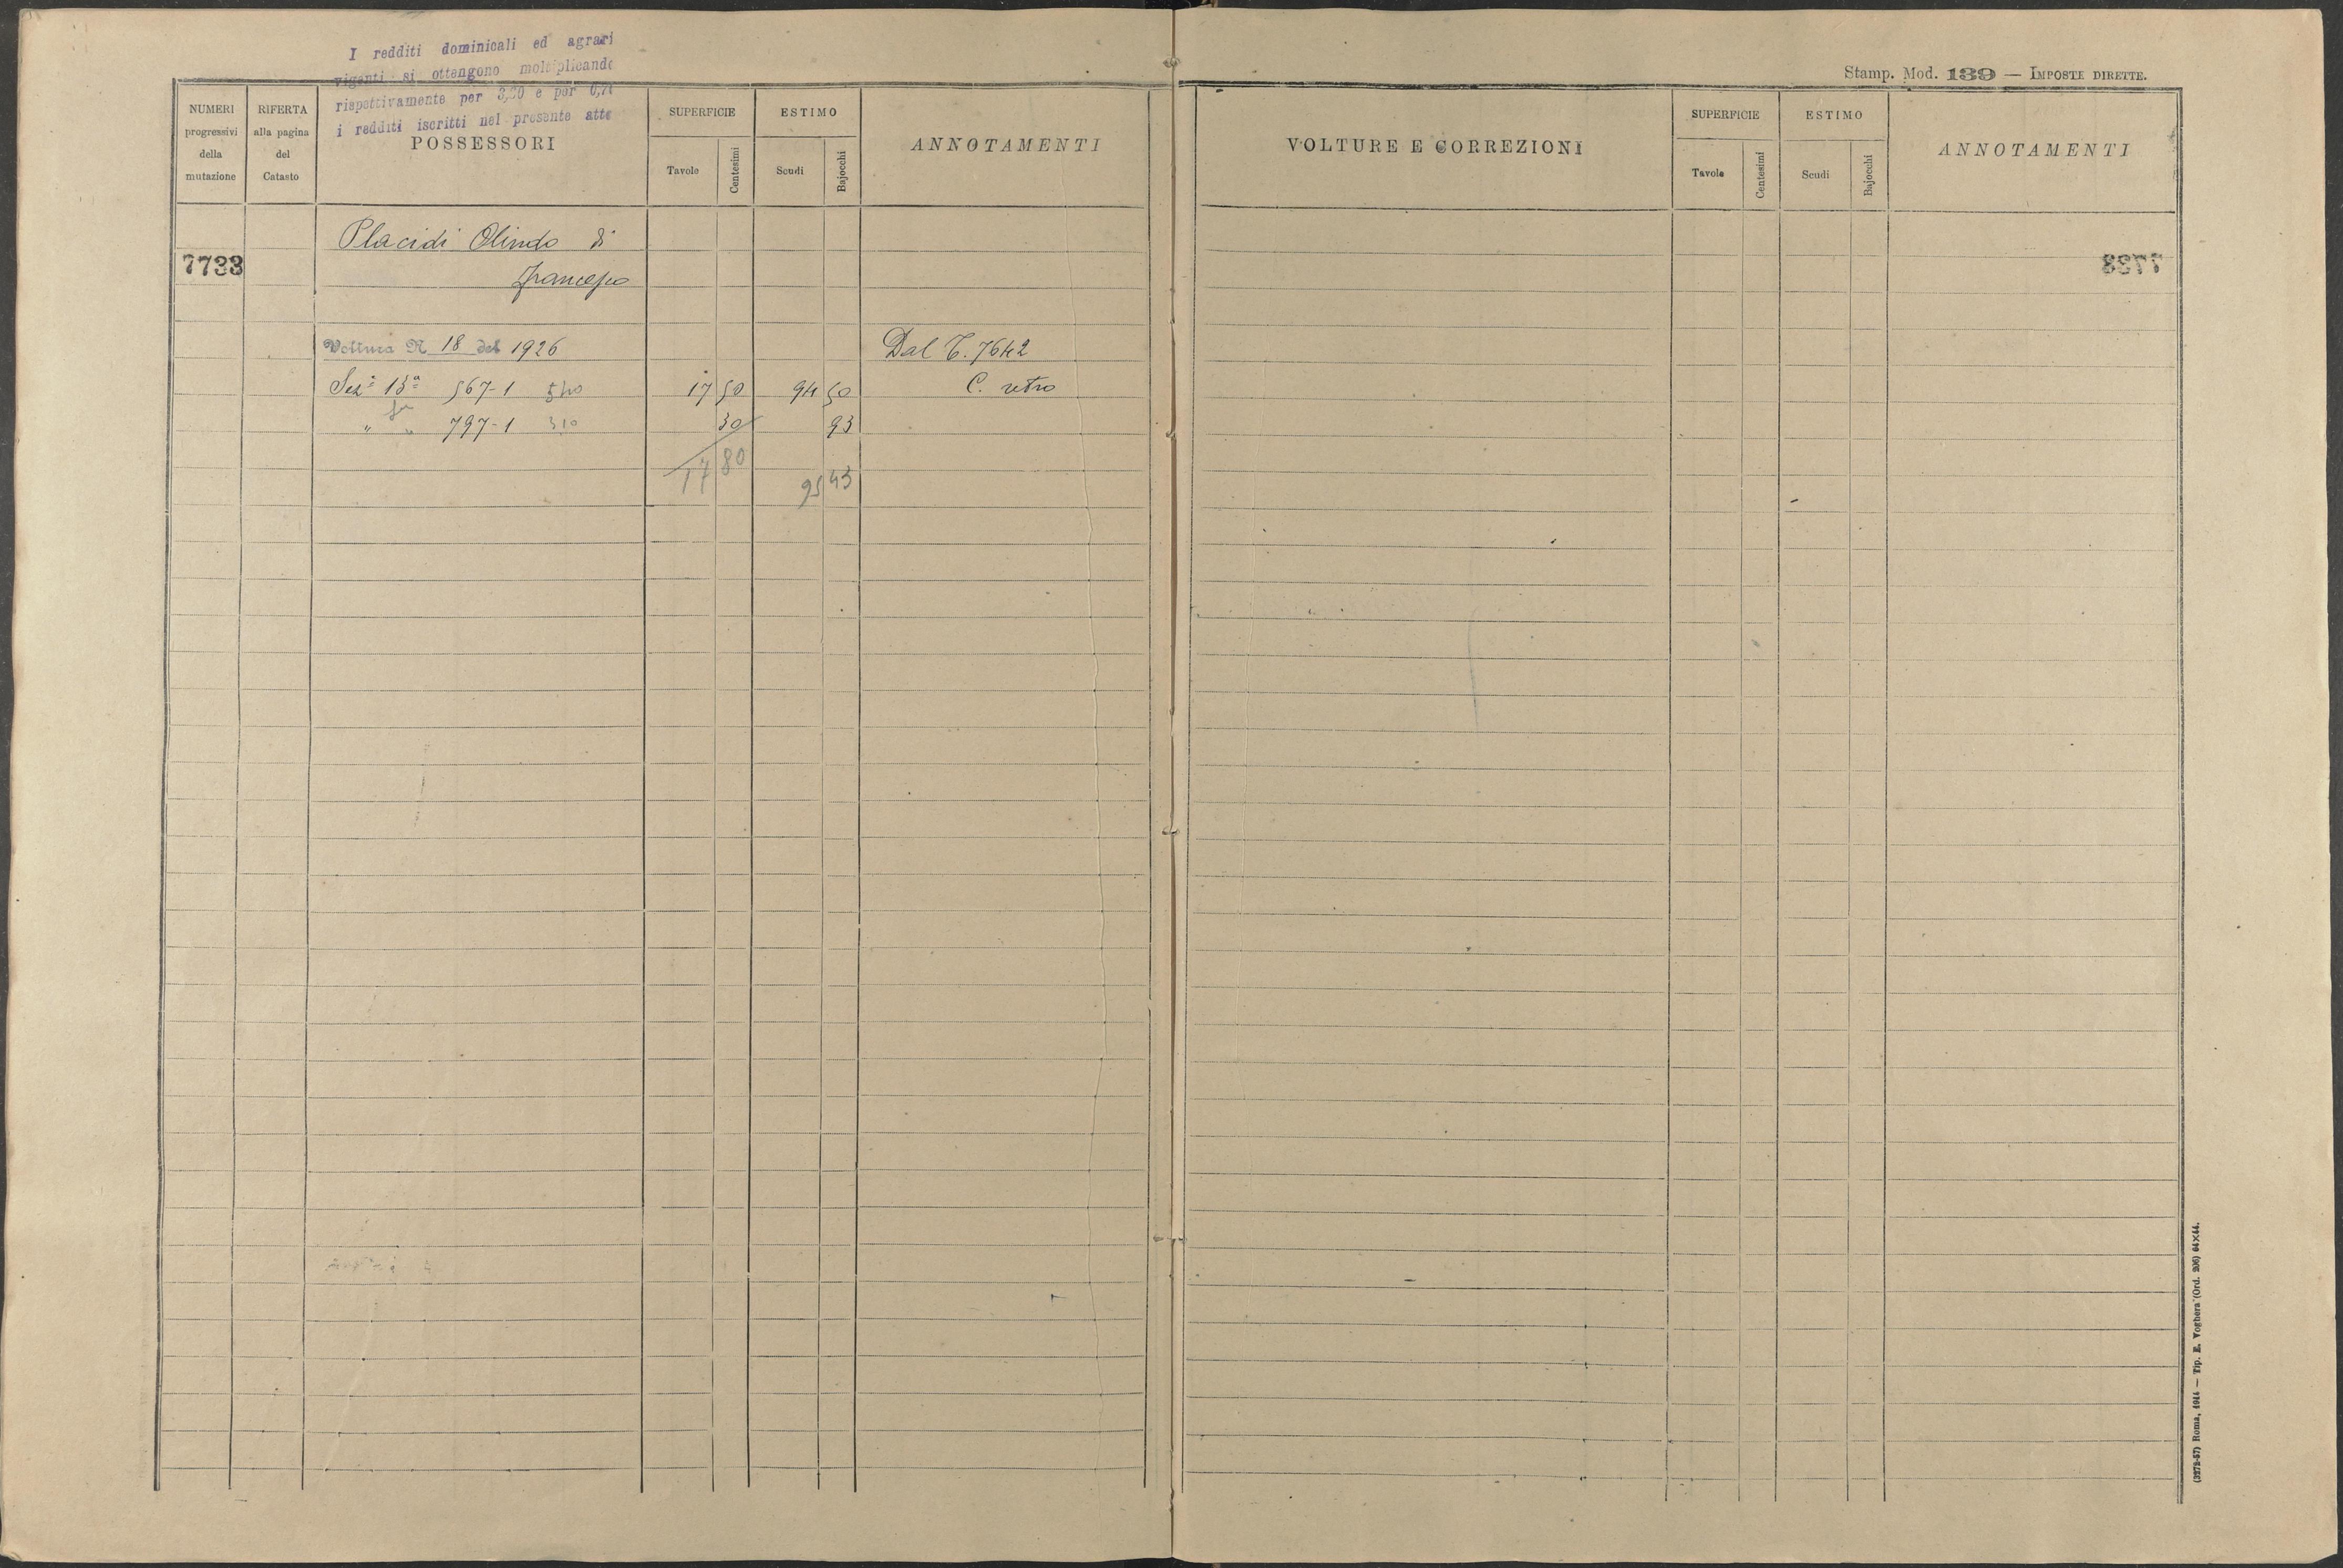 I redditi dominicali ed agrari
vigenti si ottengono moltiplicando
rispettivamente per 3,20 e per 0,70
i redditi iscritti nel presente atto
Stamp. Mod. 139 — IMPOSTE DIRETTE.
NUMERI
progressivi
della
mutazione
RIFERTA
alla pagina
del
Catasto
POSSESSORI
SUPERFICIE
Tavole
Centesimi
ESTIMO
Scudi
Bajocchi
ANNOTAMENTI
VOLTURE E CORREZIONI
SUPERFICIE
Tavole
Centesimi
ESTIMO
Scudi
Bajocchi
ANNOTAMENTI
Placidi Olindo di
7733
Francesco
7733
Voltura N 18 del 1926 Dal T. 7642
Sez: 13ª 567-1 540 17 50 94 50 C. retro
" " 797-1 310 30 93
17 80
95 43
(3272-57) Roma, 1914 — Tip. E. Voghera (Ord. 206) 64×44.